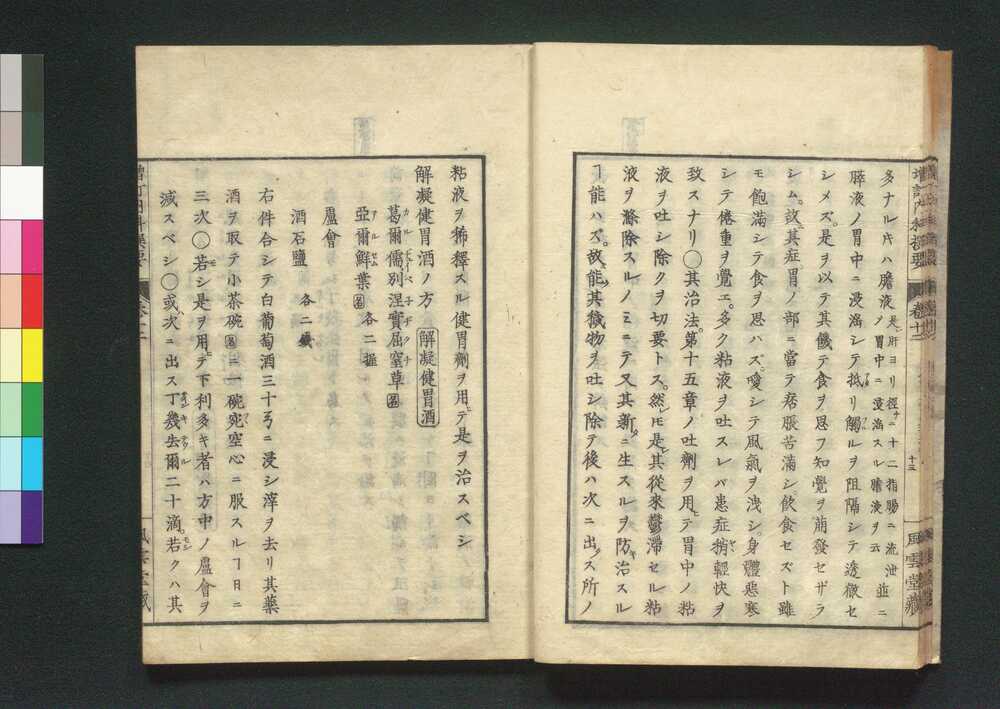 増訂内科撰要 卷十二 十三 風雲堂藏
多ナル片ハ膽液 是ヒ肝ヨリ徑ナニ十二指膓ニ流泄ノ胃中ニ浸滔スル膽液ヲ云 並ニ
膵液ノ胃中ニ浸滔シテ抵リ觸ルヲ阻隔シテ透徹セ
シメズ。是ヲ以テ其饑テ食ヲ思フ知覺ヲ萠發セザラ
シム。故ニ其症。胃ノ部ニ當テ痞脹苦滿シ飲食セズト雖
モ飽滿シテ食ヲ思ハズ。噯シテ風氣ヲ洩シ。身軆惡寒
シテ倦重ヲ覺エ。多ク粘液ヲ吐スレバ患症稍輕快ヲ
致スナリ〇其治法。第十五章ノ吐劑ヲ用テ胃中ノ粘
液ヲ吐シ除クヲ切要トス。然ドモ是其從來鬱滯セル粘
液ヲ滌除スルノミニテ又其新ニ生スルヲ防キ治スル
ヿ能ハズ。故ニ能其穢物ヲ吐シ除テ後ハ次ニ出ス所ノ
粘液ヲ稀釋スル健胃劑ヲ用テ是ヲ治スベシ
解凝健胃酒ノ方 解凝健胃酒
葛爾儒別涅實屈窒草 圖
亞爾鮮葉 圖 各二握
盧會
酒石鹽 各二錢
右件合シテ白葡萄酒三十弖ニ浸シ滓ヲ去リ其藥
酒ヲ取テ小茶碗 圖 ニ一碗宛空心ニ服スルヿ日ニ
三次〇若シ是ヲ用テ下利多キ者ハ方中ノ盧會ヲ
減スベシ〇或ハ次ニ出ス丁幾去爾二十滴。若クハ其